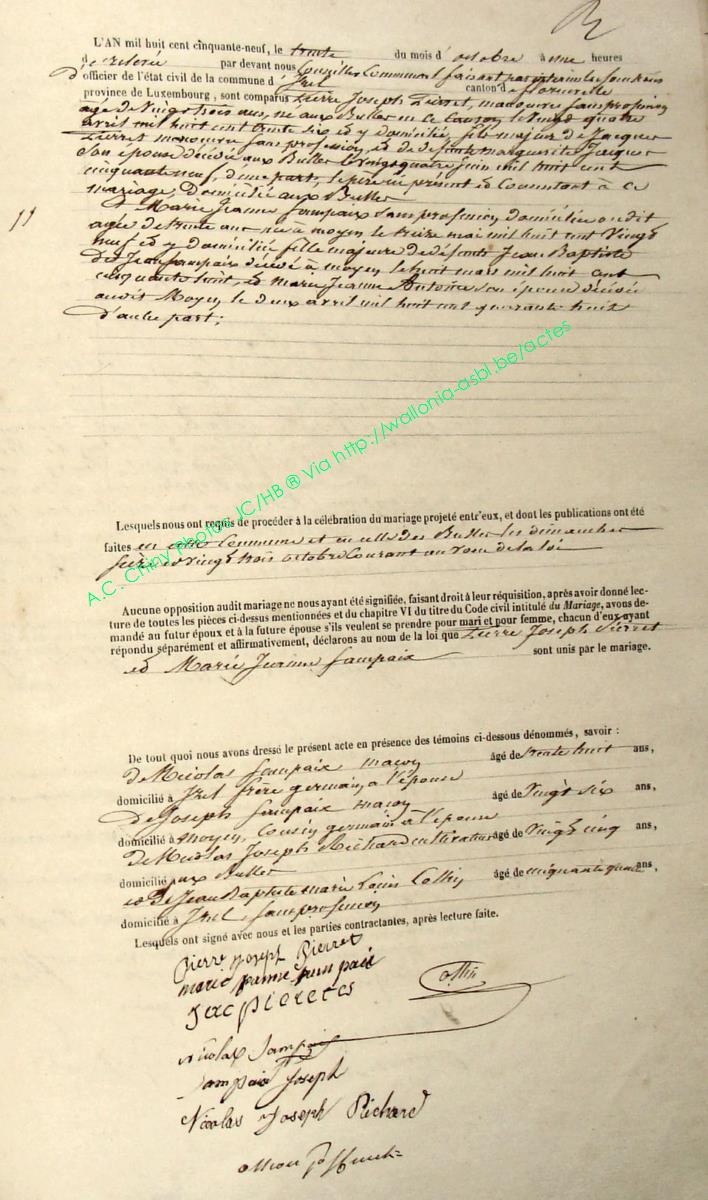 L'AN mil huit cent cinquante-neuf, le trente du mois d'octobre à une heures
de relevée par devant nous Conseiller Communal faisant par interim les fonctions
d'officier de l'état civil de la commune d'Izel canton de florenville
province de Luxembourg, sont comparus Pierre Joseph Pierret, manouvre sans profession
agé de Vingt trois ans, né aux Bulles ce Canton le Vingt quatre
avril mil huit cent trente six et y domicilié, fils majeur de Jacques
Pierret manouvre sans profession, et de défunte marguerite Jacques
Son épouse décédée aux Bulles le vingt quatre Juin mil huit cent
cinquante neuf, d'une part, le père ici présent et Consentant à ce
mariage, Domicilié aux Bulles
11
Et Marie Jeanne Sampaix sans profession domiciliée audit
agée de trente ans née à moyen le treize mai mil huit cent Vingt
neuf et y domiciliée fille majeure de défunts Jean Baptiste
Dit Jean Sampaix décédé à moyen le huit mars mil huit cent
cinquante huit, et Marie Jeanne Antoine son épouse décédée
audit Moyen le deux avril mil huit cent quarante huit
d'autre part;
Lesquels nous ont requis de procéder à la célébration du mariage projeté entr'eux, et dont les publications ont été
faites en cette Commune et en celle des Bulles les dimanches
seize et vingt trois octobre Courant au vœu de la loi
Aucune opposition audit mariage ne nous ayant été signifiée, faisant droit à leur réquisition, après avoir donné lec-
ture de toutes les pièces ci-dessus mentionnées et du chapitre VI du titre du Code civil intitulé du Mariage, avons de-
mandé au futur époux et à la future épouse s'ils veulent se prendre pour mari et pour femme, chacun d'eux ayant
répondu séparément et affirmativement, déclarons au nom de la loi que Pierre Joseph Pierret
et Marie Jeanne Sampaix sont unis par le mariage.
De tout quoi nous avons dressé le présent acte en présence des témoins ci-dessous dénommés, savoir :
de Nicolas Sampaix maçon âgé de trente huit ans,
domicilié à Izel frère germain, a l'épouse
De Joseph Sampaix maçon âgé de Vingt six ans,
domicilié à moyen, Cousin germain à l'épouse
de Nicolas Joseph Richard cultivateur âgé de Vingt cinq ans,
domicilié aux Bulles
et de Jean Baptiste marie Louis Collin âgé de cinquante ans,
domicilié à Izel sans profession
Lesquels ont signé avec nous et les parties contractantes, après lecture faite.
Pierre Joseph Pierret
marie jeanne sampaix
Collin
nicolas Sampaix
Sampaix Joseph
Nicolas Joseph Richard
A.C. Chiny Photos JC/HB ® Via http://wallonia-asbl.be/actes